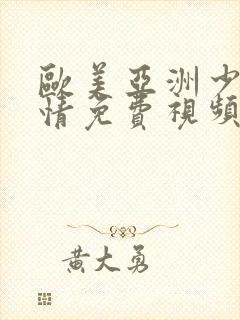 歐美亞洲少
情免費視頻
黃大勇